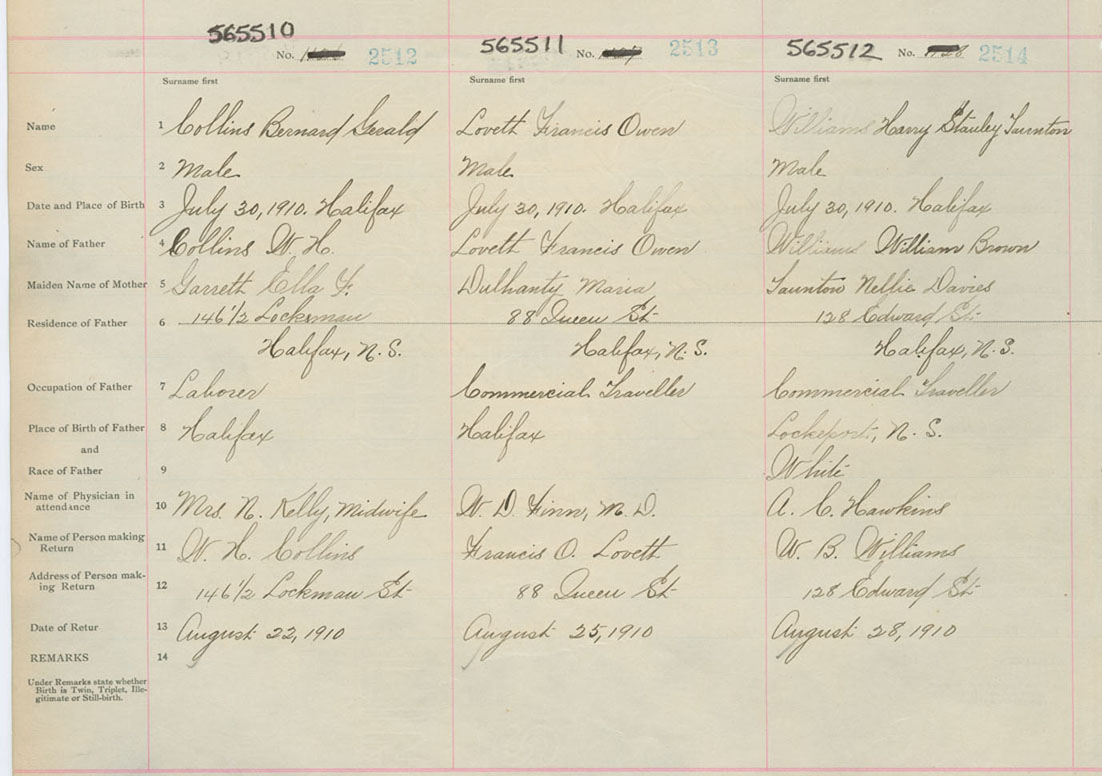 565510 No. 2512 565511 No. 2513 565512 No. 2514
Surname first Surname first Surname first
Name 1 Collins Bernard Gerald Lovett Francis Owen Williams Harry Stanley Taunton
Sex 2 Male Male Male
Date and Place of Birth 3 July 30, 1910. Halifax July 30, 1910. Halifax July 30, 1910. Halifax
Name of Father 4 Collins W. H. Lovett Francis Owen Williams William Brown
Maiden Name of Mother 5 Garrett Ella F. Dulhanty Maria Taunton Nellie Davies
Residence of Father 6 146 1/2 Lockman 88 Queen St 128 Edward St
Halifax, N.S. Halifax, N.S. Halifax, N.S.
Occupation of Father 7 Laborer Commercial Traveller Commercial Traveller
Place of Birth of Father 8 Halifax Halifax Lockeport, N.S.
and
Race of Father 9 White
Name of Physician in attendance 10 Mrs. N. Kelly, Midwife W. D. Finn, M.D. A. C. Hawkins
Name of Person making Return 11 W. H. Collins Francis O. Lovett W. B. Williams
Address of Person making Return 12 146 1/2 Lockman St 88 Queen St 128 Edward St
Date of Retur 13 August 22, 1910 August 25, 1910 August 28, 1910
REMARKS 14
Under Remarks state whether
Birth is Twin, Triplet, Ille-
gitimate or Still-birth.